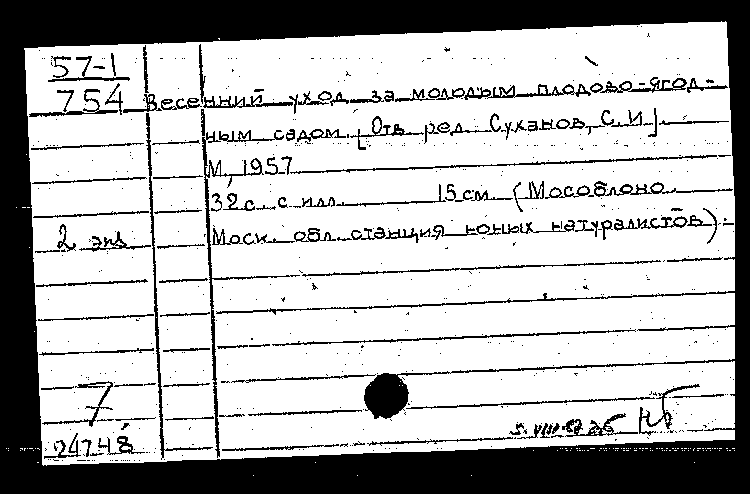 57-1
754
Весенний уход за молодым плодово-ягод-
ным садом. [Отв. ред. Суханов, С. И.].
М., 1957
32 с. с илл. 15 см. (Мособлоно.
Моск. обл. станция юных натуралистов).
2 экз
7
24748
5.VIII.57
Нб